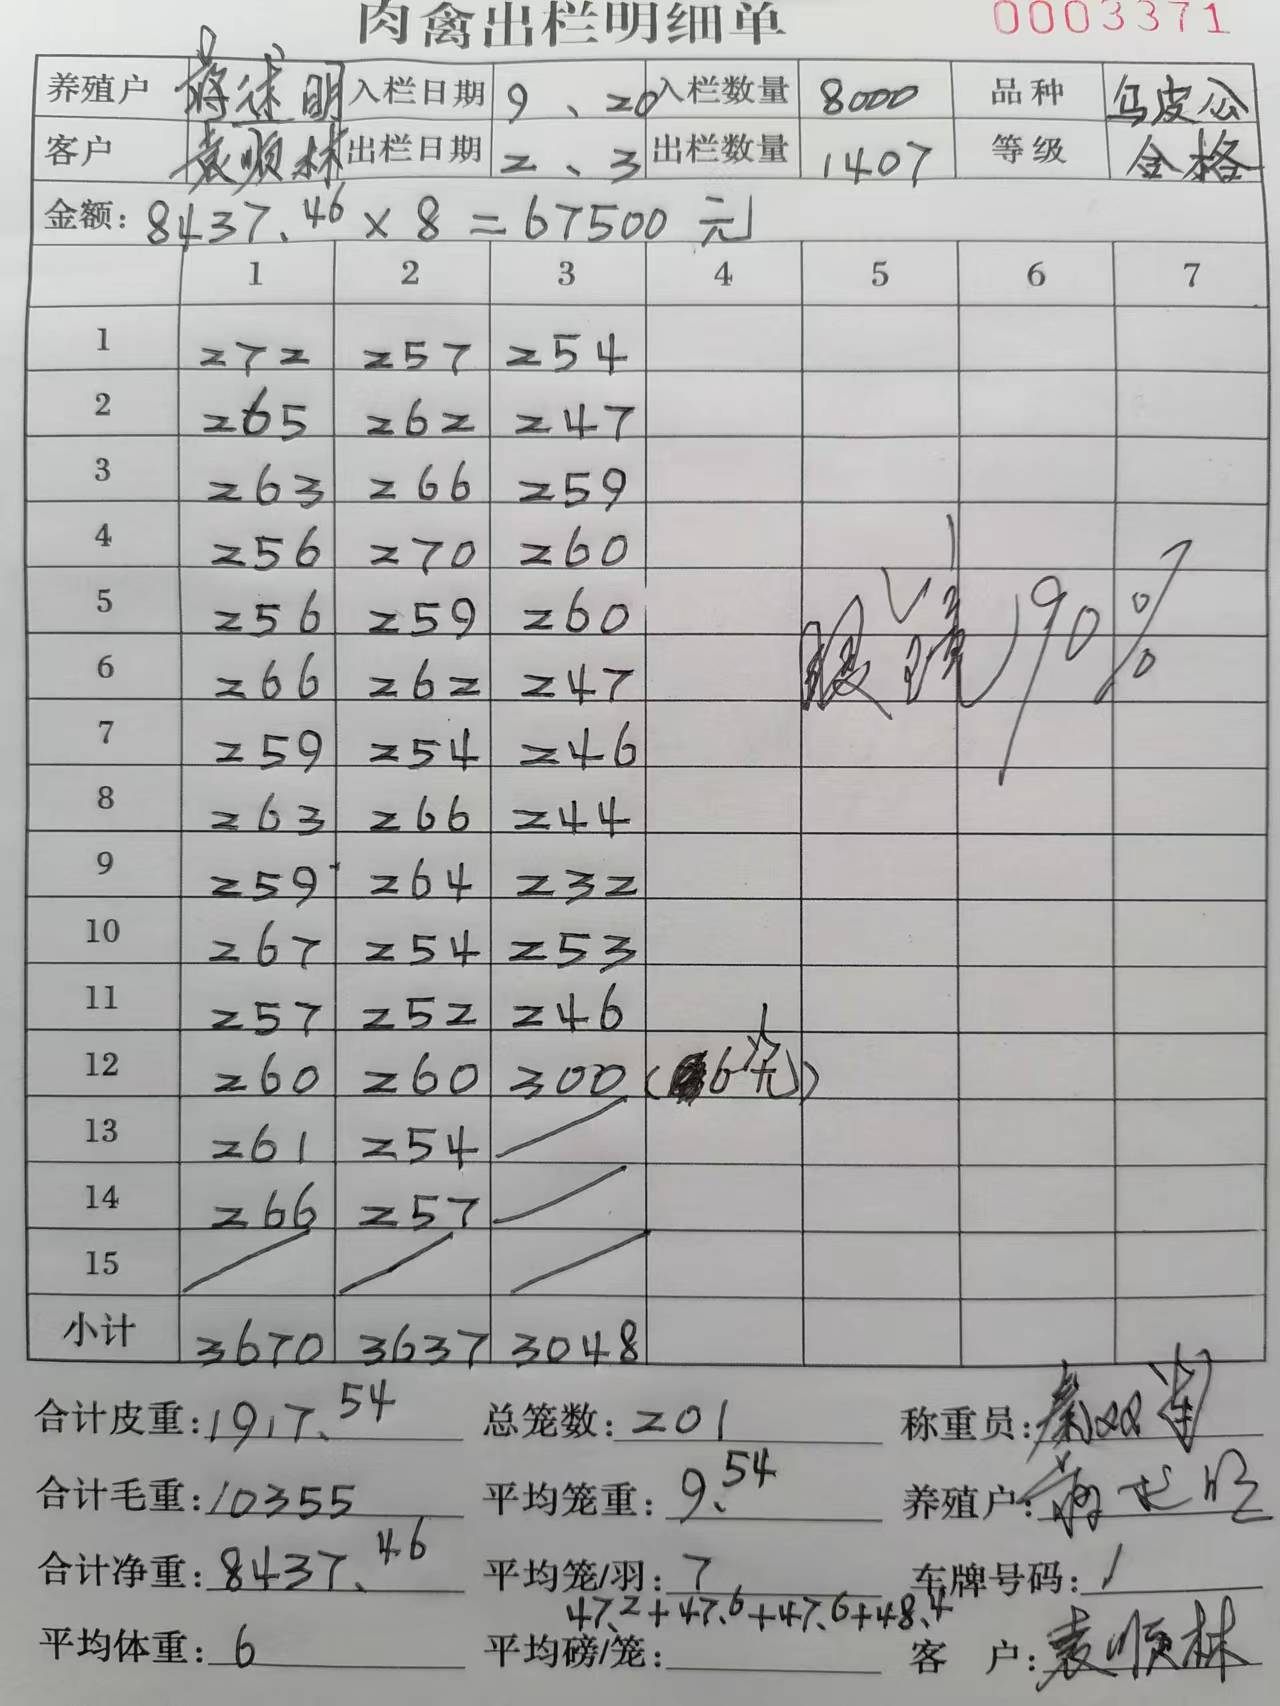 肉禽出栏明细单 0003371
养殖户 蒋述明 入栏日期 9、20 入栏数量 8000 品种 乌皮公
客户 袁顺林 出栏日期 2、3 出栏数量 1407 等级 合格
金额: 8437.46 × 8 = 67500 元
1 2 3 4 5 6 7
1 272 257 254
2 265 262 247
3 263 266 259
4 256 270 260
5 256 259 260
6 266 262 247
7 259 254 246
8 263 266 244
9 259 264 232
10 267 254 253
11 257 252 246
12 260 260 300 (6笼)
13 261 254
14 266 257
15
90%
小计 3670 3637 3048
合计皮重: 1917.54 总笼数: 201 称重员:
合计毛重: 10355 平均笼重: 9.54 养殖户:
合计净重: 8437.46 平均笼/羽: 7 车牌号码:
47.2+47.6+47.6+48.4
平均体重: 6 平均磅/笼: 客 户: 袁顺林